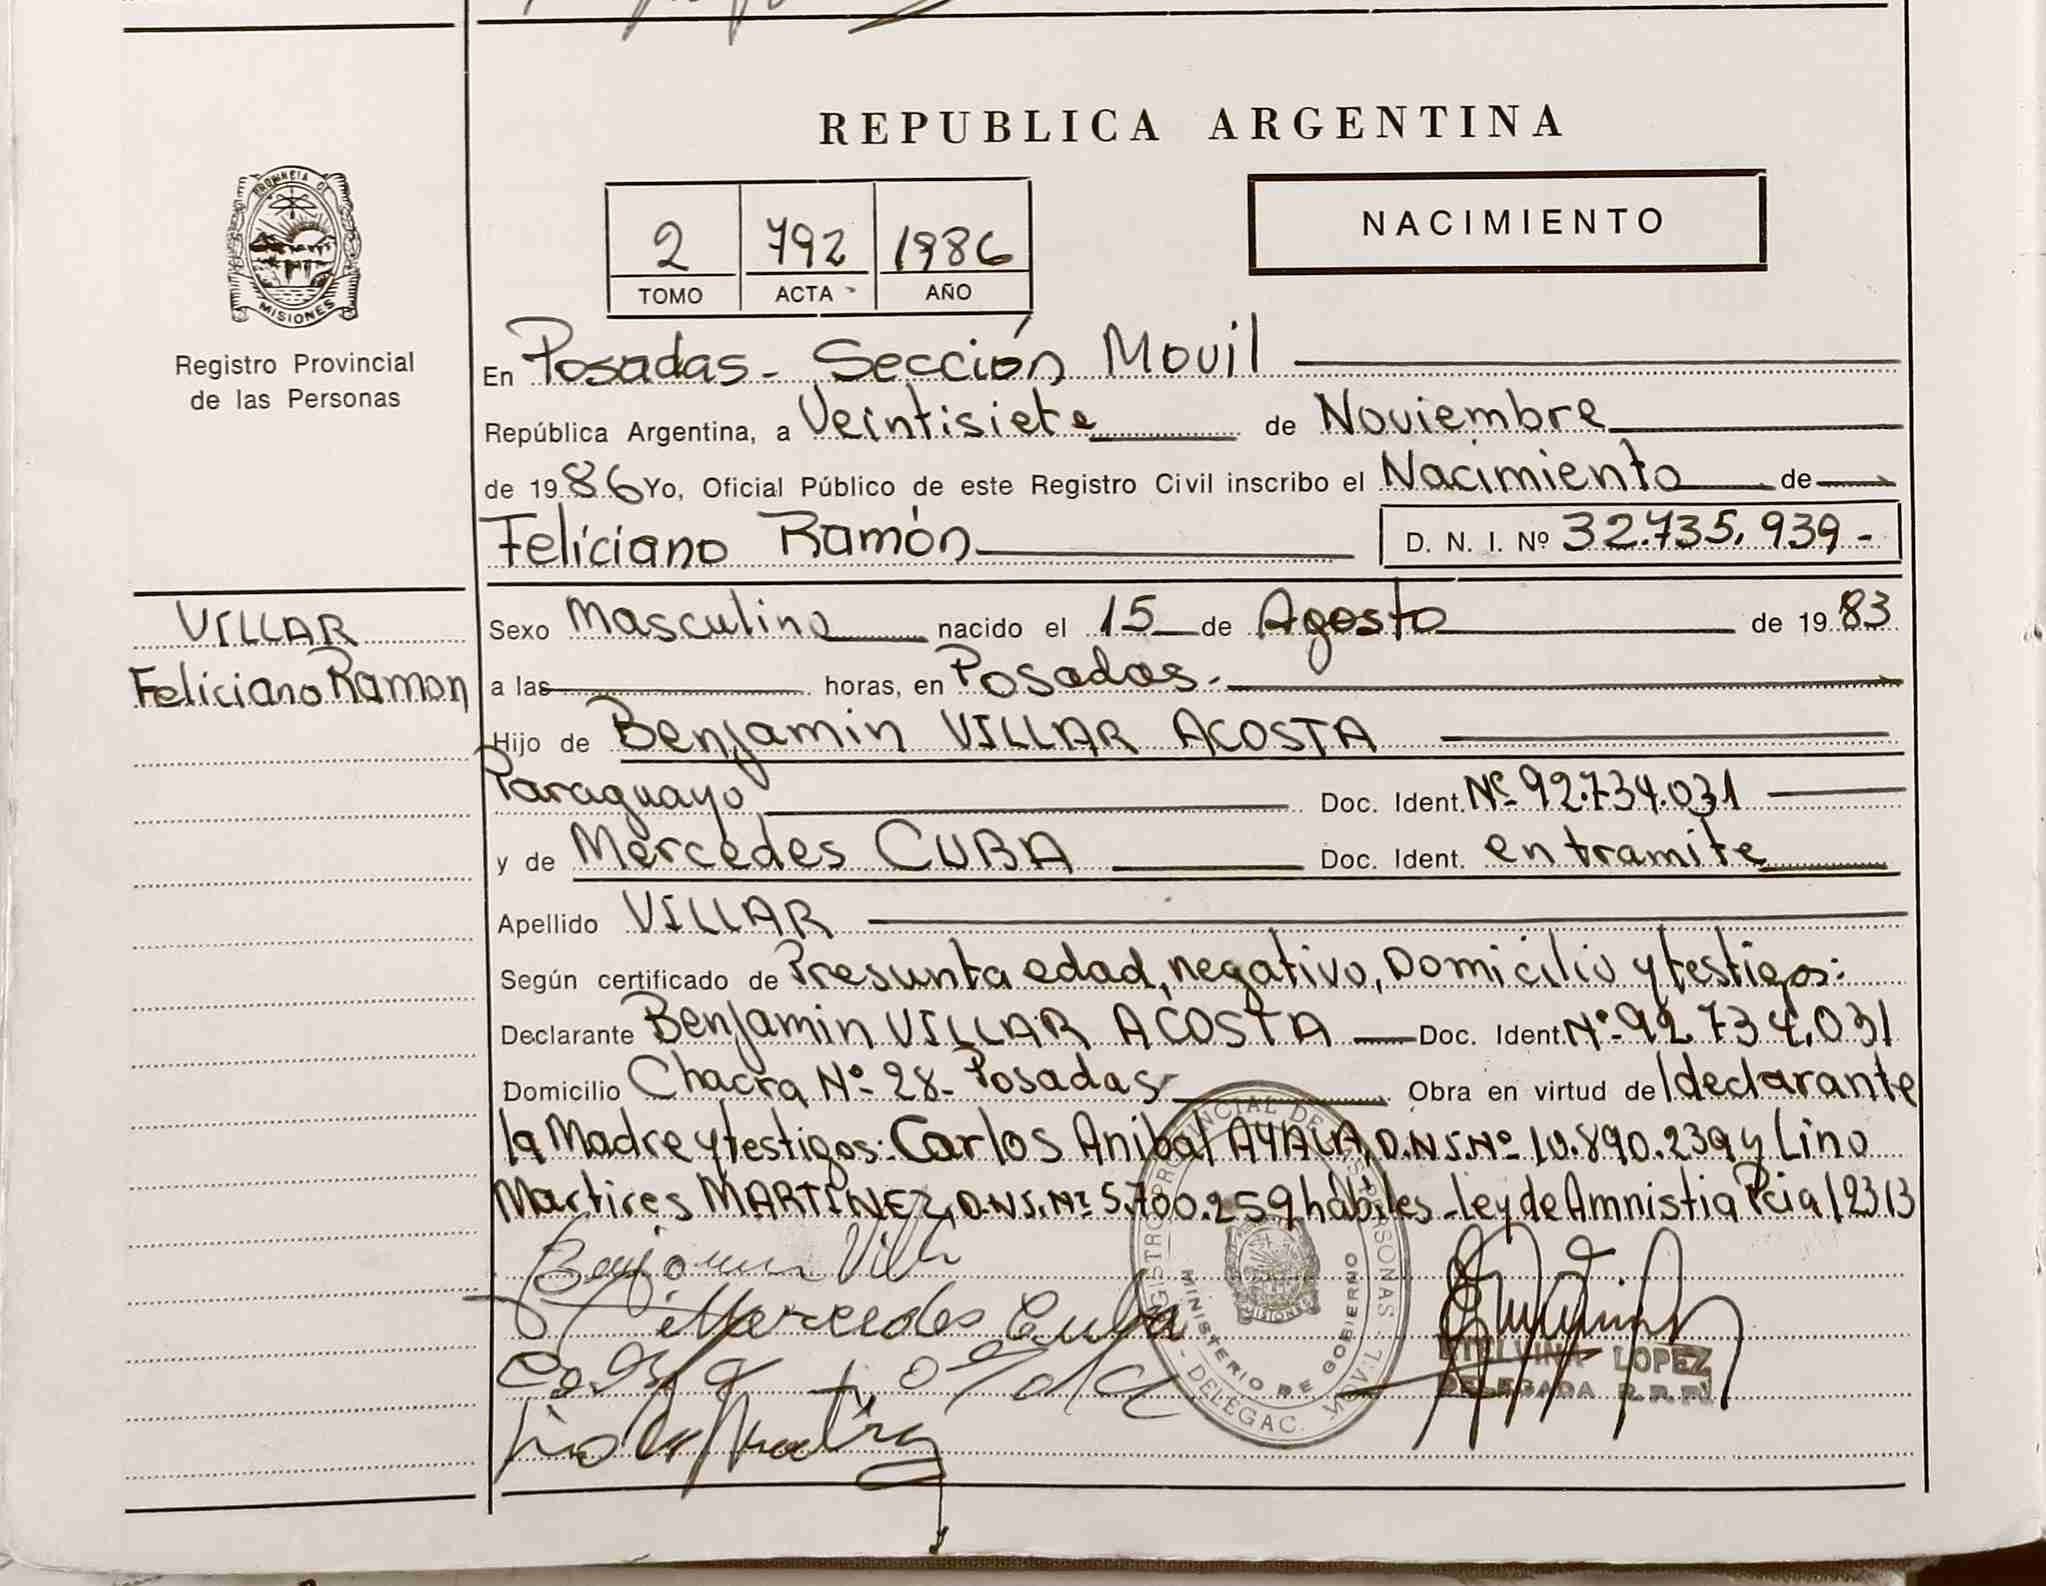 REPUBLICA ARGENTINA
PROVINCIA DE
MISIONES
Registro Provincial
de las Personas
2 792 1986
TOMO ACTA AÑO
NACIMIENTO
En Posadas - Sección Movil
República Argentina, a Veintisiete de Noviembre
de 1986 Yo, Oficial Público de este Registro Civil inscribo el Nacimiento de
Feliciano Ramón D. N. I. Nº 32.735.939-
VILLAR
Feliciano Ramon
Sexo Masculino nacido el 15 de Agosto de 1983
a las horas, en Posadas.
Hijo de Benjamin VILLAR ACOSTA
Paraguayo Doc. Ident. Nº 92.734.031
y de Mercedes CUBA Doc. Ident. en tramite
Apellido VILLAR
Según certificado de Presunta edad, negativo, Domicilio y testigos:
Declarante Benjamin VILLAR ACOSTA Doc. Ident. Nº 92.734.031
Domicilio Chacra Nº 28- Posadas Obra en virtud de / declarante
la Madre y testigos: Carlos Anibal AYALA, D.N.I. Nº 10.890.239 y Lino
Martires MARTINEZ, D.N.I. Nº 5.700.259 hábiles - Ley de Amnistia Pcial 2313
Benjamin Vill
Mercedes Cuba
REGISTRO PROVINCIAL DE LAS PERSONAS
MINISTERIO DE GOBIERNO
MISIONES
- DELEGAC. MOVIL -
LOPEZ
DELEGADA R. P. P.